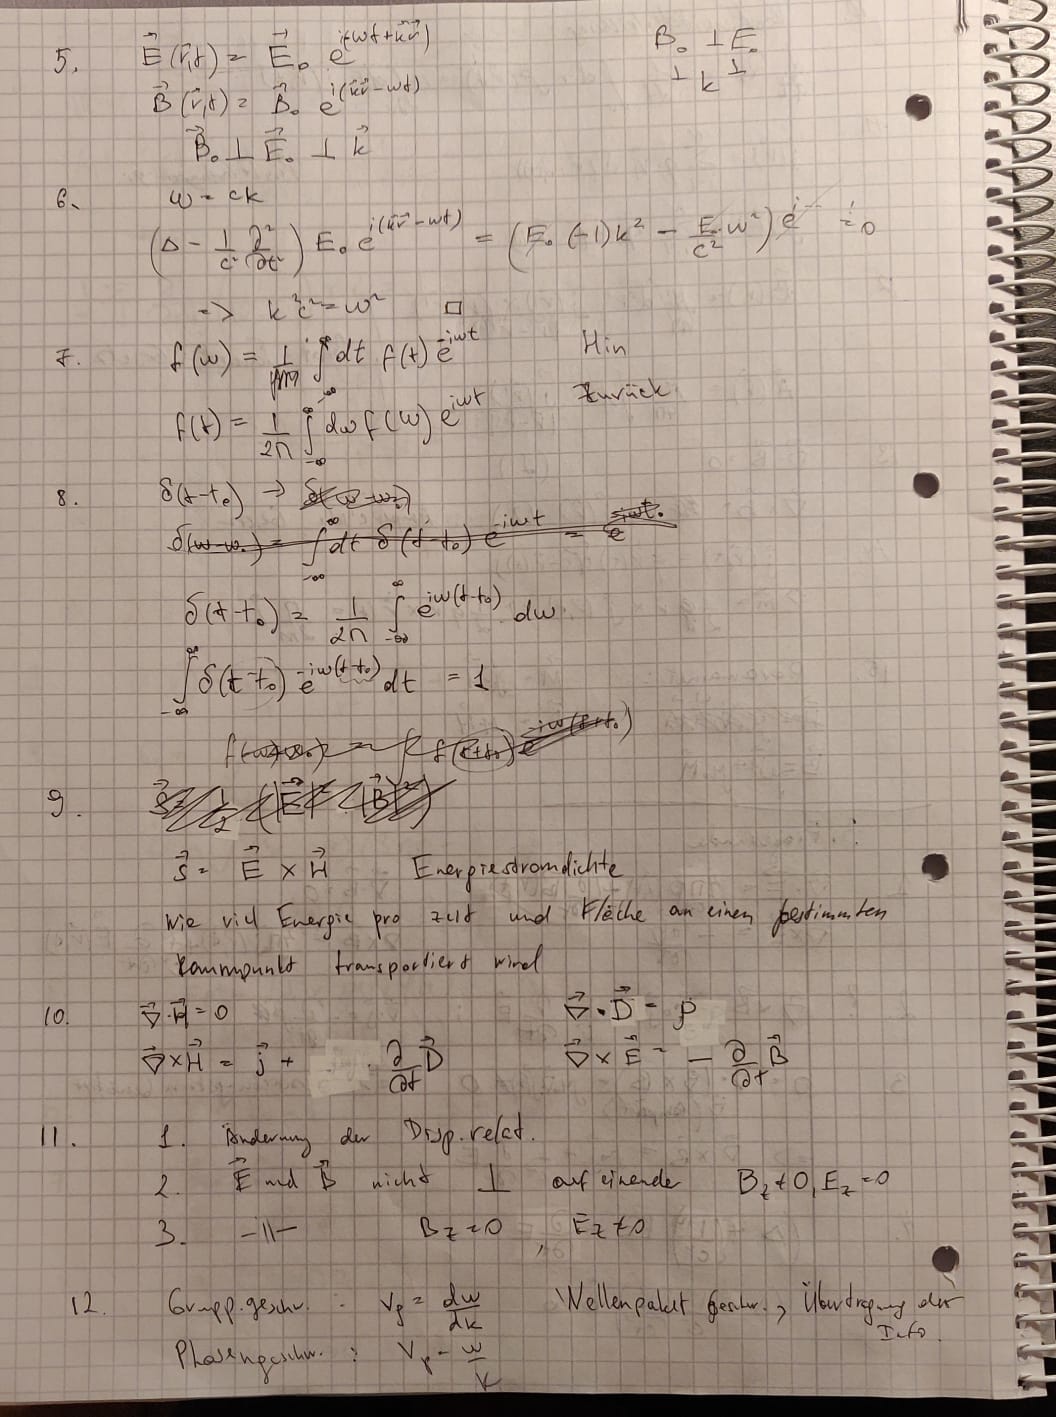 5. E⃗(r⃗,t) = E⃗₀ e^{i(-ωt+k⃗r⃗)} B₀ ⊥ E₀
⊥ k ⊥
B⃗(r⃗,t) = B⃗₀ e^{i(k⃗r⃗-ωt)}
B⃗₀ ⊥ E⃗₀ ⊥ k⃗
6. ω = ck
(Δ - 1/c² ∂²/∂t²) E₀ e^{i(k⃗r⃗-ωt)} = (E₀ (-1)k² - E₀/c² ω²) e^{i...} = 0
=> k²c² = ω² □
7. f(ω) = 1/ ∫_{-∞}^{∞} dt f(t) e^{-iωt} Hin
f(t) = 1/2π ∫_{-∞}^{∞} dω f(ω) e^{iωt} Zurück
8. δ(t-t₀) → δ(ω-ω₀)
δ(ω-ω₀) = ∫_{-∞}^{∞} dt δ(t-t₀) e^{-iωt} = e^{-iωt₀}
δ(t-t₀) = 1/2π ∫_{-∞}^{∞} e^{iω(t-t₀)} dω
∫_{-∞}^{∞} δ(t-t₀) e^{-iω(t-t₀)} dt = 1
9.
S⃗ = E⃗ × H⃗ Energiestromdichte
Wie viel Energie pro zeit und Fläche an einen bestimmten
Raumpunkt transportiert wird
10. ∇⃗·H⃗ = 0 ∇⃗·D⃗ = ρ
∇⃗×H⃗ = j⃗ + ∂/∂t D⃗ ∇⃗×E⃗ = - ∂/∂t B⃗
11. 1. Änderung der Disp.relat.
2. E⃗ und B⃗ nicht ⊥ auf einende B_z≠0, E_z=0
3. -||- B_z=0, E_z≠0
12. Grupp.geschw. : v_g = dω/dk Wellenpaket geschw., Übertragung der
Info.
Phasengeschw. : v_p = ω/k